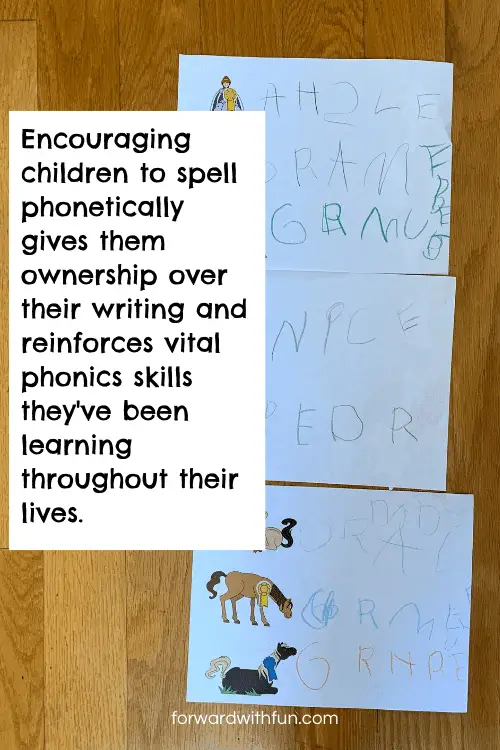 Encouraging
children to spell
phonetically
gives them
ownership over
their writing and
reinforces vital
phonics skills
they've been
learning
throughout their
lives.
EDR
forwardwithfun.com